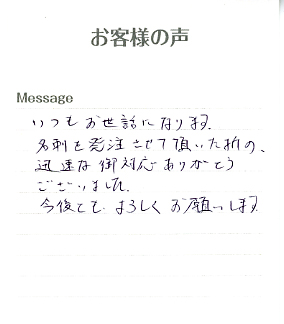 お客様の声
Message
いつもお世話になります.
名刺を発注させて頂いた折の、
迅速な御対応ありがとう
ございました.
今後とも よろしく お願いします.